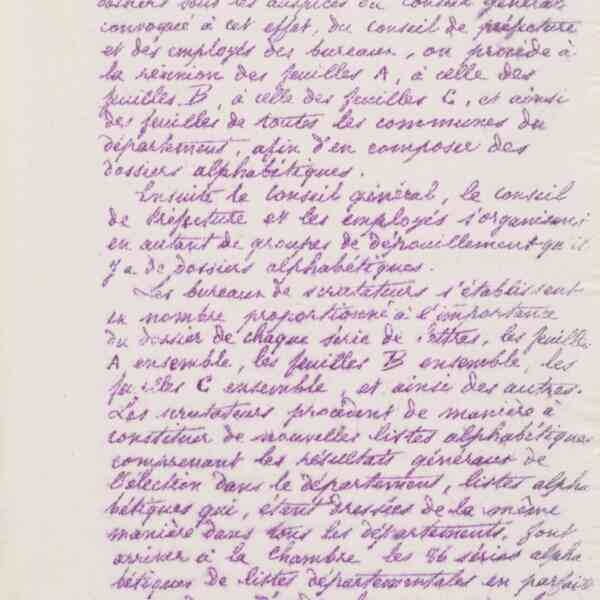 dossiers sous les auspices du conseil général
convoqué à cet effet, du conseil de préfecture
et des employés des bureaux, on procède à
la réunion des feuilles A, à celle des
feuilles B, à celle des feuilles C, et ainsi
des feuilles de toutes les communes du
département, afin d'en composer des
dossiers alphabétiques.
Ensuite le Conseil général, le conseil
de Préfecture et les employés s'organisent
en autant de groupes de dépouillement qu'il
y a de dossiers alphabétiques.
Les bureaux de scrutateurs s'établissent
en nombre proportionné à l'importance
du dossier de chaque série de lettres, les feuilles
A ensemble, les feuilles B ensemble, les
feuilles C ensemble, et ainsi des autres.
Les scrutateurs procèdent de manière à
constituer de nouvelles listes alphabétiques
comprenant les résultats généraux de
l'élection dans le département, listes alpha
bétiques qui, étant dressées de la même
manière dans tous les départements, font
arriver à la Chambre les 86 séries alpha
bétiques de listes départementales en parfait